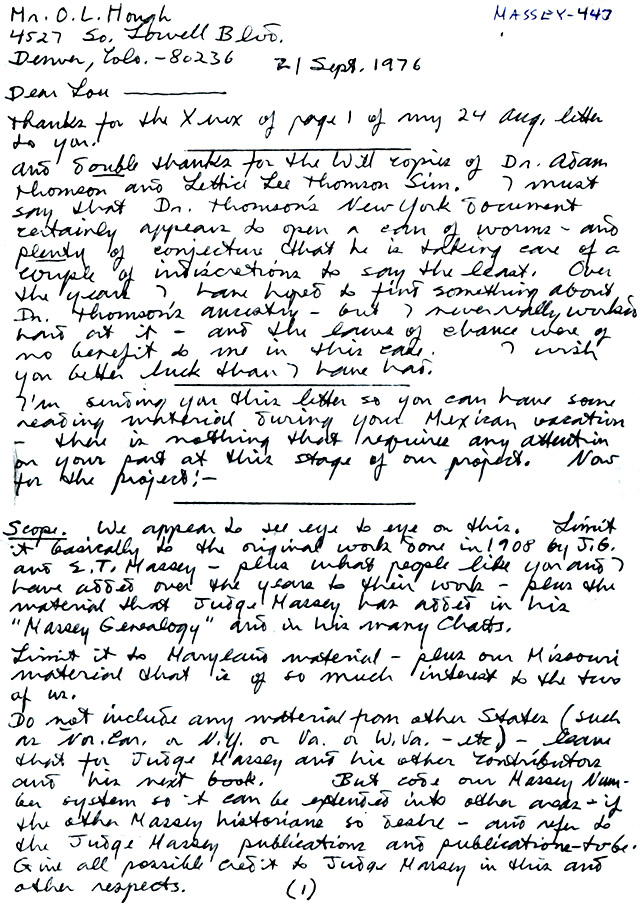 Mr. O.L. Hough
MASSEY-443
4527 So. Lowell Blvd.
Denver, Colo. - 80236
21 Sept. 1976
Dear Lou
Thanks for the Xerox of page 1 of my 24 Aug. letter
to you.
And double thanks for the Will copies of Dr. Adam
Thomson and Lettice Lee Thomson Sim. I must
say that Dr. Thomson's New York Document
certainly appears to open a can of worms - and
plenty of conjecture that he is taking care of a
couple of indiscretions to say the least. Over
the years I have hoped to find something about
Dr. Thomson's ancestry - but I never really worked
hard at it - and the laws of chance were of
no benefit to me in this case. I wish
you better luck than I have had.
I'm sending you this letter so you can have some
reading material during your Mexican vacation
- there is nothing that requires any attention
on your part at this stage of our project. Now
for the project:-
Scope. We appear to see eye to eye on this. Limit
it basically to the original work done in 1908 by J.G.
and E.T. Massey - plus what people like you and I
have added over the years to their work - plus the
material that Judge Massey has added in his
"Massey Genealogy" and in his many Chatts.
Limit it to Maryland material - plus our Missouri
material that is of so much interest to the two
of us.
Do not include any material from other States (such
as Nor. Car. or N.Y. or Va. or W. Va. - etc) - leave
that for Judge Massey and his other contributors
and his next book. But code our Massey Num-
ber system so it can be extended into other areas - if
the other Massey historians so desire - and refer to
the Judge Massey publications and publications-to-be.
Give all possible credit to Judge Massey in this and
other respects. (1)